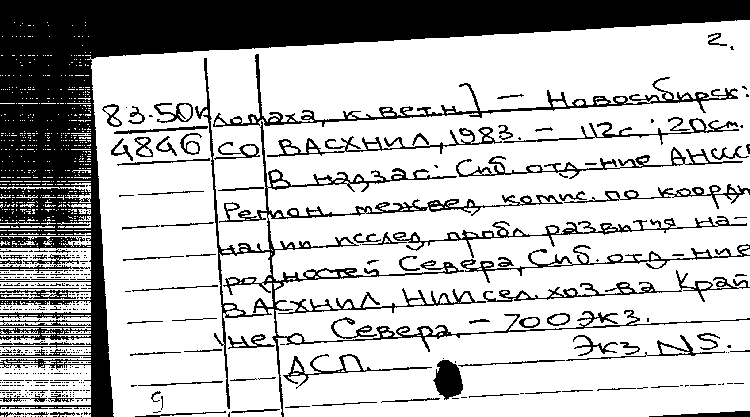 2.
83.50к ломаха, к.вет.н] — Новосибирск:
4846 СО ВАСХНИЛ, 1983. — 112с; 20см.
В надзаг: Сиб. отд-ние АНССС
Регион. межвед. комис. по коорди
нации исслед. пробл развития на-
родностей Севера, Сиб. отд-ние
ВАСХНИЛ, НИИсел. хоз-ва Край
него Севера. — 700экз.
ДСП. Экз. N5.
9